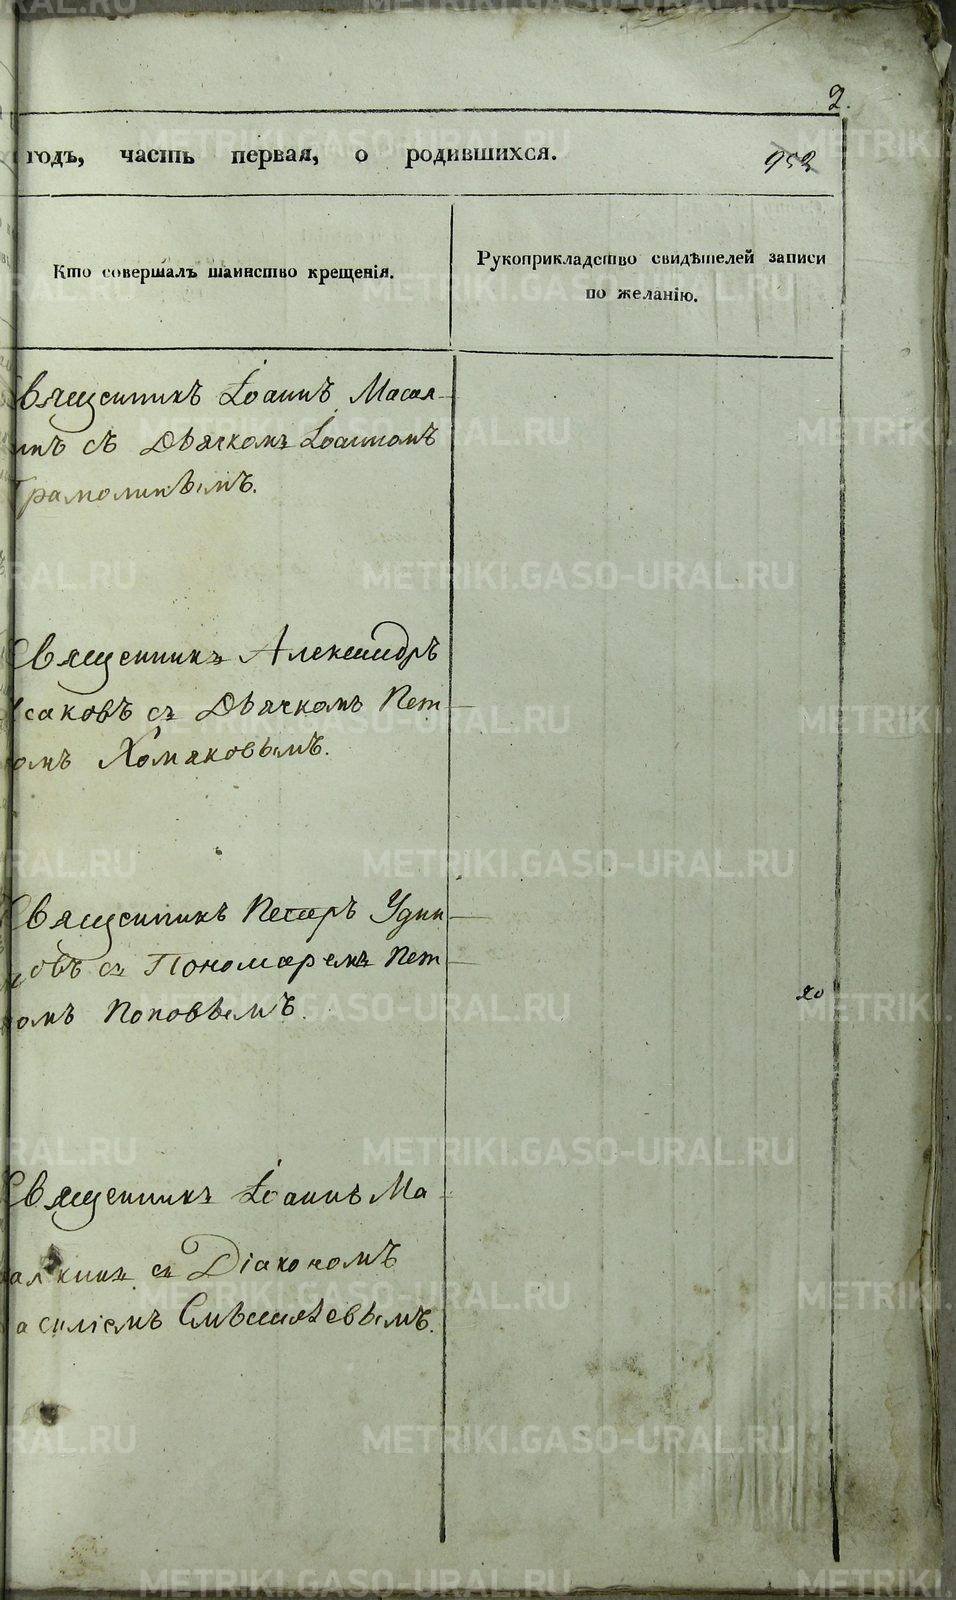 2.
годъ, часть первая, о родившихся.
952
Кто совершалъ таинство крещенія.
Рукоприкладство свидѣтелей записи
по желанію.
Священникъ Іоаннъ Масал-
съ Дьячкомъ Іоанномъ
Священникъ Александръ
саковъ съ Дьячкомъ Пет-
ромъ Хомяковымъ.
Священникъ Петръ Удин-
цовъ съ Пономаремъ Пет-
ромъ Поповымъ.
Священникъ Іоаннъ Ма-
салкинъ съ Діакономъ
Василіемъ
METRIKI.GASO-URAL.RU